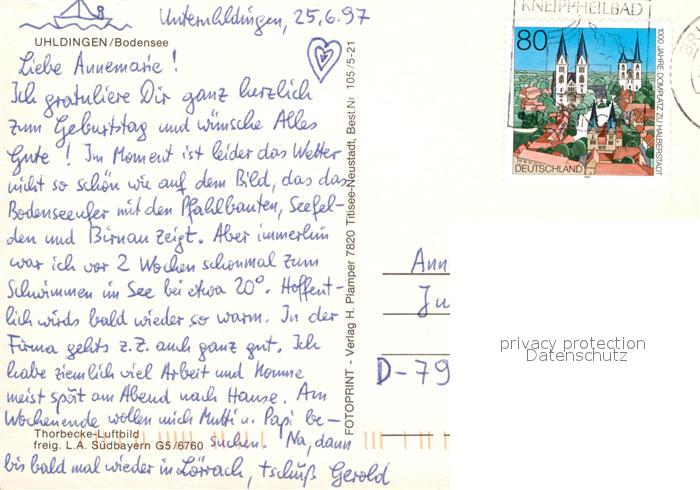 Unteruhldingen, 25.6.97
UHLDINGEN/Bodensee
Liebe Annemarie!
Ich gratuliere Dir ganz herzlich
zum Geburtstag und wünsche Alles
Gute! Im Moment ist leider das Wetter
nicht so schön wie auf dem Bild, das das
Bodenseeufer mit den Pfahlbauten, Seefel-
den und Birnau zeigt. Aber immerhin
war ich vor 2 Wochen schonmal zum
Schwimmen im See bei etwa 20°. Hoffent-
lich wirds bald wieder so warm. In der
Firma gehts z.Z. auch ganz gut. Ich
habe ziemlich viel Arbeit und komme
meist spät am Abend nach Hause. Am
Wochenende wollen mich Mutti u. Papi be-
suchen. Na, dann
bis bald mal wieder in Lörrach, tschüß Gerold
Thorbecke-Luftbild
freig. L.A. Südbayern G5/6760
FOTOPRINT - Verlag H. Plamper 7820 Titisee-Neustadt, Best.Nr 105/5-21
KNEIPPHEILBAD
80
1000 JAHRE DOMPLATZ ZU HALBERSTADT
DEUTSCHLAND
Ann
Ju
D-79
privacy protection
Datenschutz